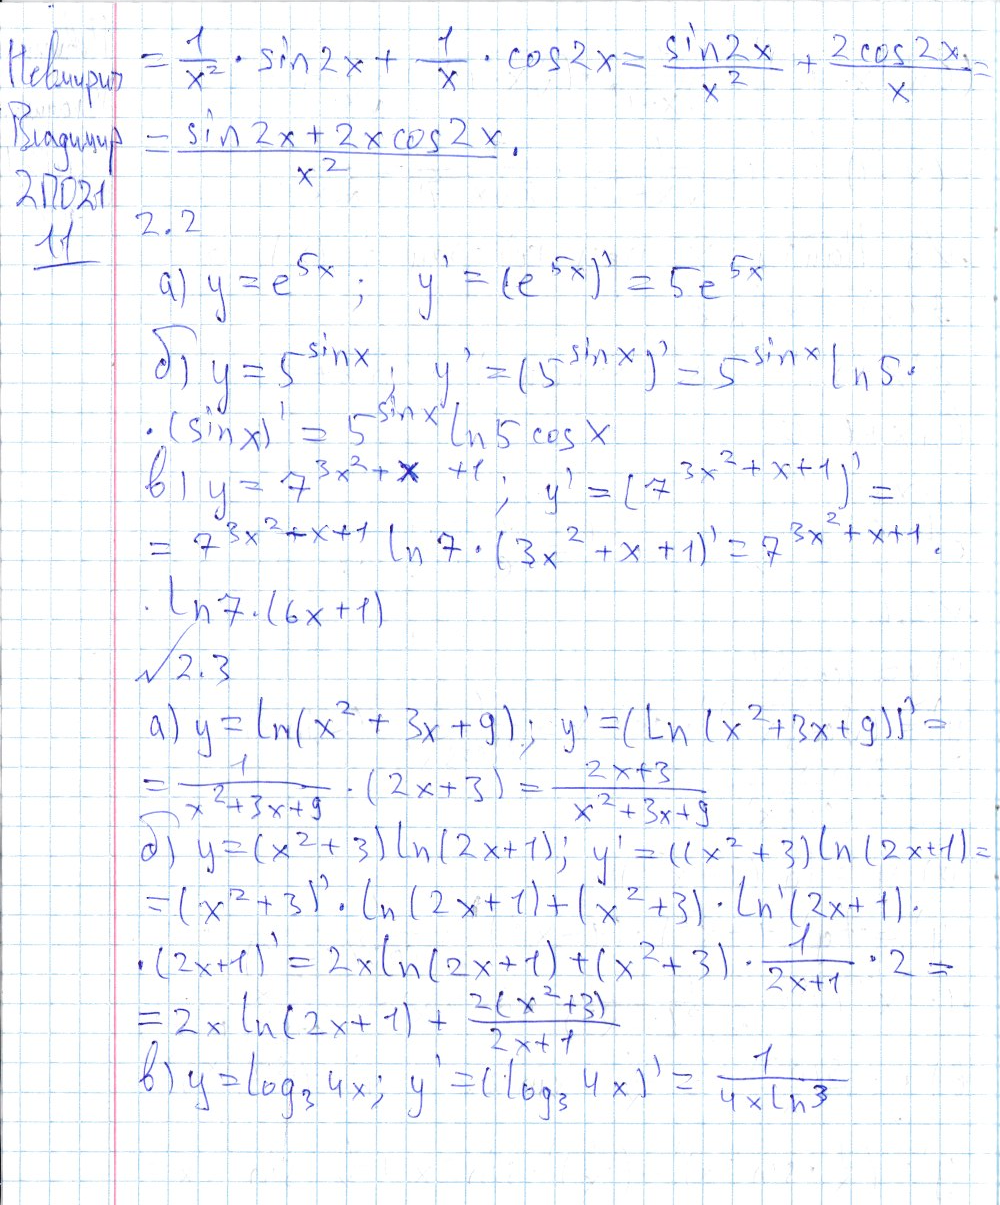 Владимир
2ПО21
11
= 1/x² · sin2x + 1/x · cos2x = sin2x/x² + 2cos2x/x =
= (sin2x + 2xcos2x)/x² .
2.2
а) y = e^5x ; y' = (e^5x)' = 5e^5x
б) y = 5^sinx ; y' = (5^sinx)' = 5^sinx ln5 ·
· (sinx)' = 5^sinx ln5 cosx
в) y = 7^3x²+x+1 ; y' = (7^3x²+x+1)' =
= 7^3x²+x+1 ln7 · (3x² + x + 1)' = 7^3x²+x+1 ·
· ln7 · (6x+1)
√2.3
а) y = ln(x² + 3x + 9) ; y' = (ln(x²+3x+9))' =
= 1/(x²+3x+9) · (2x+3) = (2x+3)/(x²+3x+9)
б) y = (x²+3)ln(2x+1); y' = ((x²+3)ln(2x+1) =
= (x²+3)' · ln(2x+1) + (x²+3) · ln'(2x+1) ·
· (2x+1)' = 2xln(2x+1) + (x²+3) · 1/(2x+1) · 2 =
= 2x ln(2x+1) + 2(x²+3)/(2x+1)
в) y = log₃4x; y' = (log₃ 4x)' = 1/(4xln3)